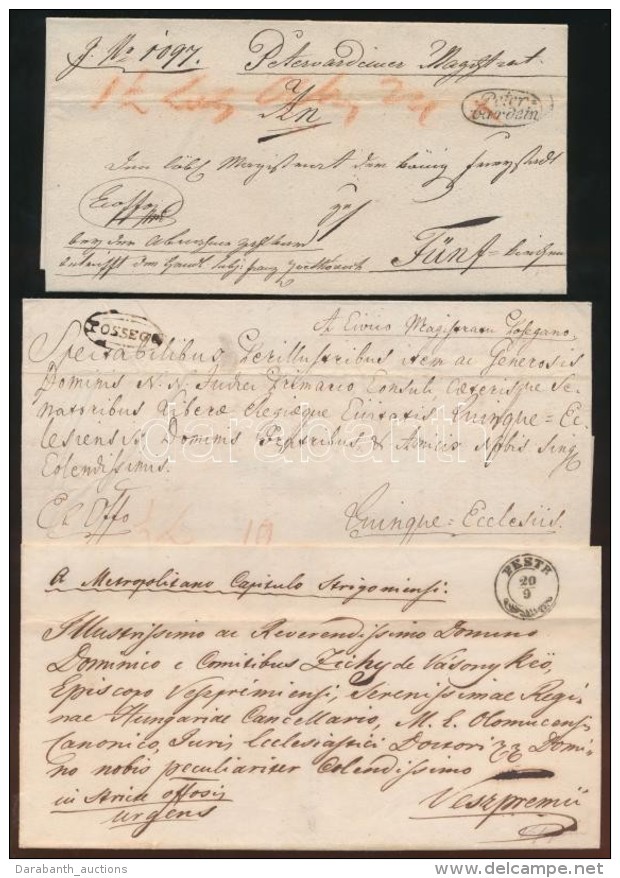 J. No 1097. Petervardeiner Magistrat
An
Peter
vardein
Den löbl Magistrat der König Freystadt
Ex offo
Fünf=kirchen
POSSEGA
A Civico Magistratu Posegano,
Spectabilibus, Perillustribus item ac Generosis
Dominis N. N. Judici Primario Consuli, Cæterisque Se-
natoribus Liberæ Regiæque Civitatis Quinque=Ec-
lesiensis, Dominis Fratribus, & Amicis Nobis sing
Colendissimis.
Ex Offo Quinque=Ecclesiis.
darabanth
PESTH
20
9
A Metropolitano Capitulo Strigoniensi.
Illustrissimo ac Reverendissimo Domino
Dominico e Comitibus Zichy de Vásonykëö,
Episcopo Veszprémiensi, Serenissimae Regi-
nae Hungariae Cancellario, M. E. Olomucensi
Canonico, Juris Ecclesiastici Doctori Domi-
no nobis peculiariter Colendissimo
in Strict offosis Veszpremii
urgens
Darabanth_auctions delcampe.net